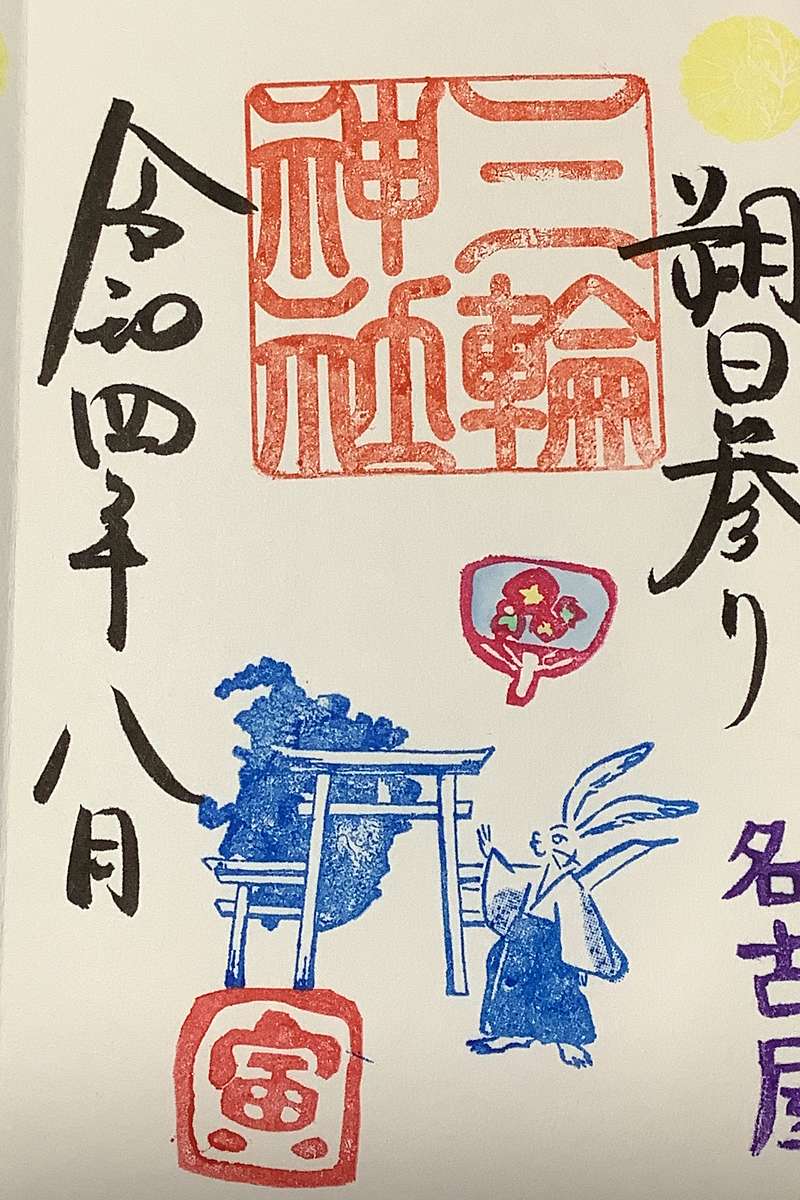 朔日参り
三輪
神社
名古屋
令和四年八月
寅